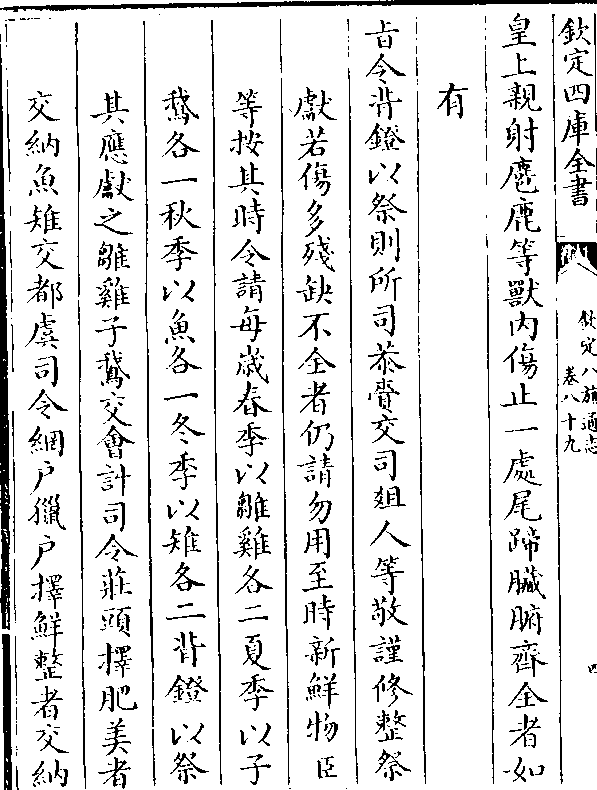 欽定四庫全書
欽定八旗通志
卷八十九
四
皇上親射麅鹿等獸内傷止一處尾蹄臟腑齊全者如
有
㫖令背鐙以祭則所司恭賫交司俎人等敬謹修整祭
獻若傷多殘缺不全者仍請勿用至時新鮮物臣
等按其時令請每歲春季以雛雞各二夏季以子
鵞各一秋季以魚各一冬季以雉各二背鐙以祭
其應獻之雛雞子鵞交會計司令莊頭擇肥美者
交納魚雉交都虞司令網户獵户擇鮮整者交納